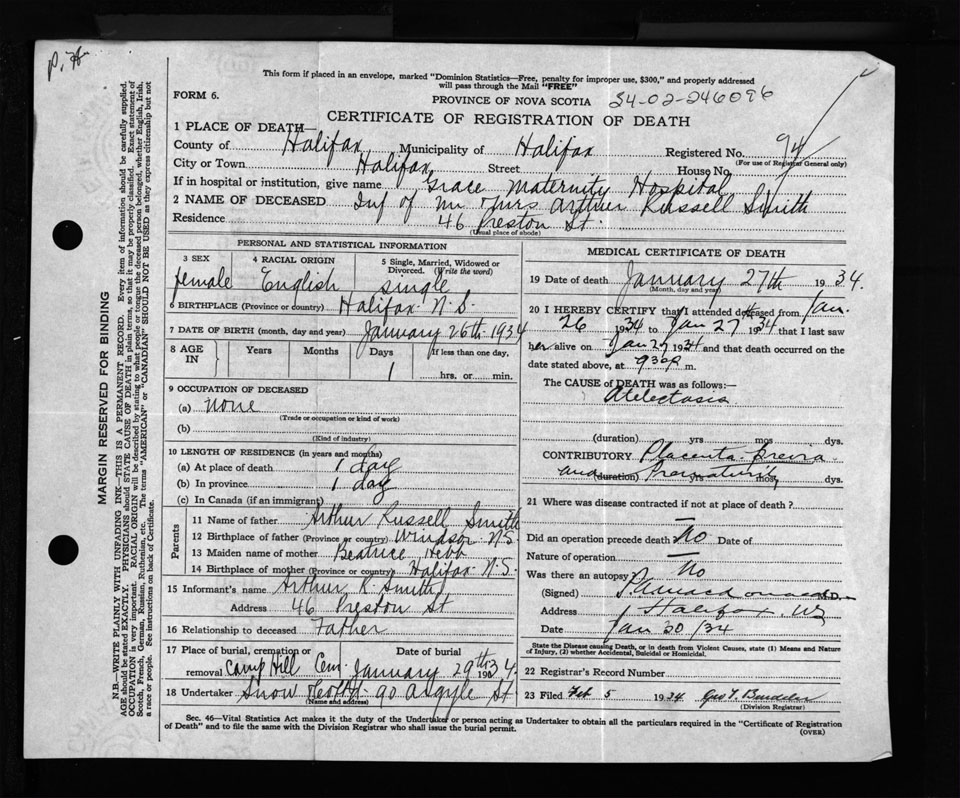 P. H.
This form if placed in an envelope, marked "Dominion Statistics—Free, penalty for improper use, $300," and properly addressed
will pass through the Mail "FREE"
FORM 6.
PROVINCE OF NOVA SCOTIA 34-02-246096
CERTIFICATE OF REGISTRATION OF DEATH
1 PLACE OF DEATH—
County of Halifax Municipality of Halifax Registered No. 94
(For use of Registrar General only)
City or Town Halifax Street House No.
If in hospital or institution, give name Grace Maternity Hospital
2 NAME OF DECEASED Inf of Mr & Mrs Arthur Russell Smith
Residence 46 Preston St.
(Usual place of abode)
PERSONAL AND STATISTICAL INFORMATION
3 SEX 4 RACIAL ORIGIN 5 Single, Married, Widowed or Divorced. (Write the word)
female English single
6 BIRTHPLACE (Province or country) Halifax N.S.
7 DATE OF BIRTH (month, day and year) January 26th 1934
8 AGE IN Years Months Days If less than one day,
1 hrs. or min.
9 OCCUPATION OF DECEASED
(a) none
(Trade or occupation or kind of work)
(b)
(Kind of industry)
10 LENGTH OF RESIDENCE (in years and months)
(a) At place of death 1 day
(b) In province 1 day
(c) In Canada (if an immigrant)
Parents
11 Name of father Arthur Russell Smith
12 Birthplace of father (Province or country) Windsor N.S.
13 Maiden name of mother Beatrice Hebb
14 Birthplace of mother (Province or country) Halifax N.S.
15 Informant's name Arthur R. Smith
Address 46 Preston St
16 Relationship to deceased Father
17 Place of burial, cremation or removal Camp Hill Cem. Date of burial January 29th 1934
18 Undertaker Snow Co Ltd 90 Argyle St
(Name and address)
MEDICAL CERTIFICATE OF DEATH
19 Date of death January 27th 1934.
(Month, day and year)
20 I HEREBY CERTIFY that I attended deceased from Jan.
26 1934 to Jan 27th 1934 that I last saw
her alive on Jan 27 1934 and that death occurred on the
date stated above, at m.
The CAUSE of DEATH was as follows:—
Atelectasis
(duration) yrs mos dys.
CONTRIBUTORY Placenta Previa
and Prematurity
(duration) yrs mos dys.
21 Where was disease contracted if not at place of death?
—
Did an operation precede death No Date of
Nature of operation —
Was there an autopsy No
(Signed) M.D.
Address Halifax, NS
Date Jan 30/34
State the Disease causing Death, or in death from Violent Causes, state (1) Means and Nature
of Injury, (2) whether Accidental, Suicidal or Homicidal.
22 Registrar's Record Number
23 Filed Feb 5 1934 Geo
(Division Registrar)
Sec. 46—Vital Statistics Act makes it the duty of the Undertaker or person acting as Undertaker to obtain all the particulars required in the "Certificate of Registration
of Death" and to file the same with the Division Registrar who shall issue the burial permit.
(OVER)
MARGIN RESERVED FOR BINDING
N.B.—WRITE PLAINLY WITH UNFADING INK—THIS IS A PERMANENT RECORD. Every item of information should be carefully supplied.
AGE should be stated EXACTLY. PHYSICIANS should STATE CAUSE OF DEATH in plain terms, so that it may be properly classified. Exact statement of
OCCUPATION is very important. RACIAL ORIGIN will be described by stating to what people or tongue the deceased person belonged, whether English, Irish,
Scotch, French, German, Russian, Ruthenian, etc. The terms "AMERICAN" or "CANADIAN" SHOULD NOT BE USED as they express citizenship but not
a race or people. See instructions on back of Certificate.